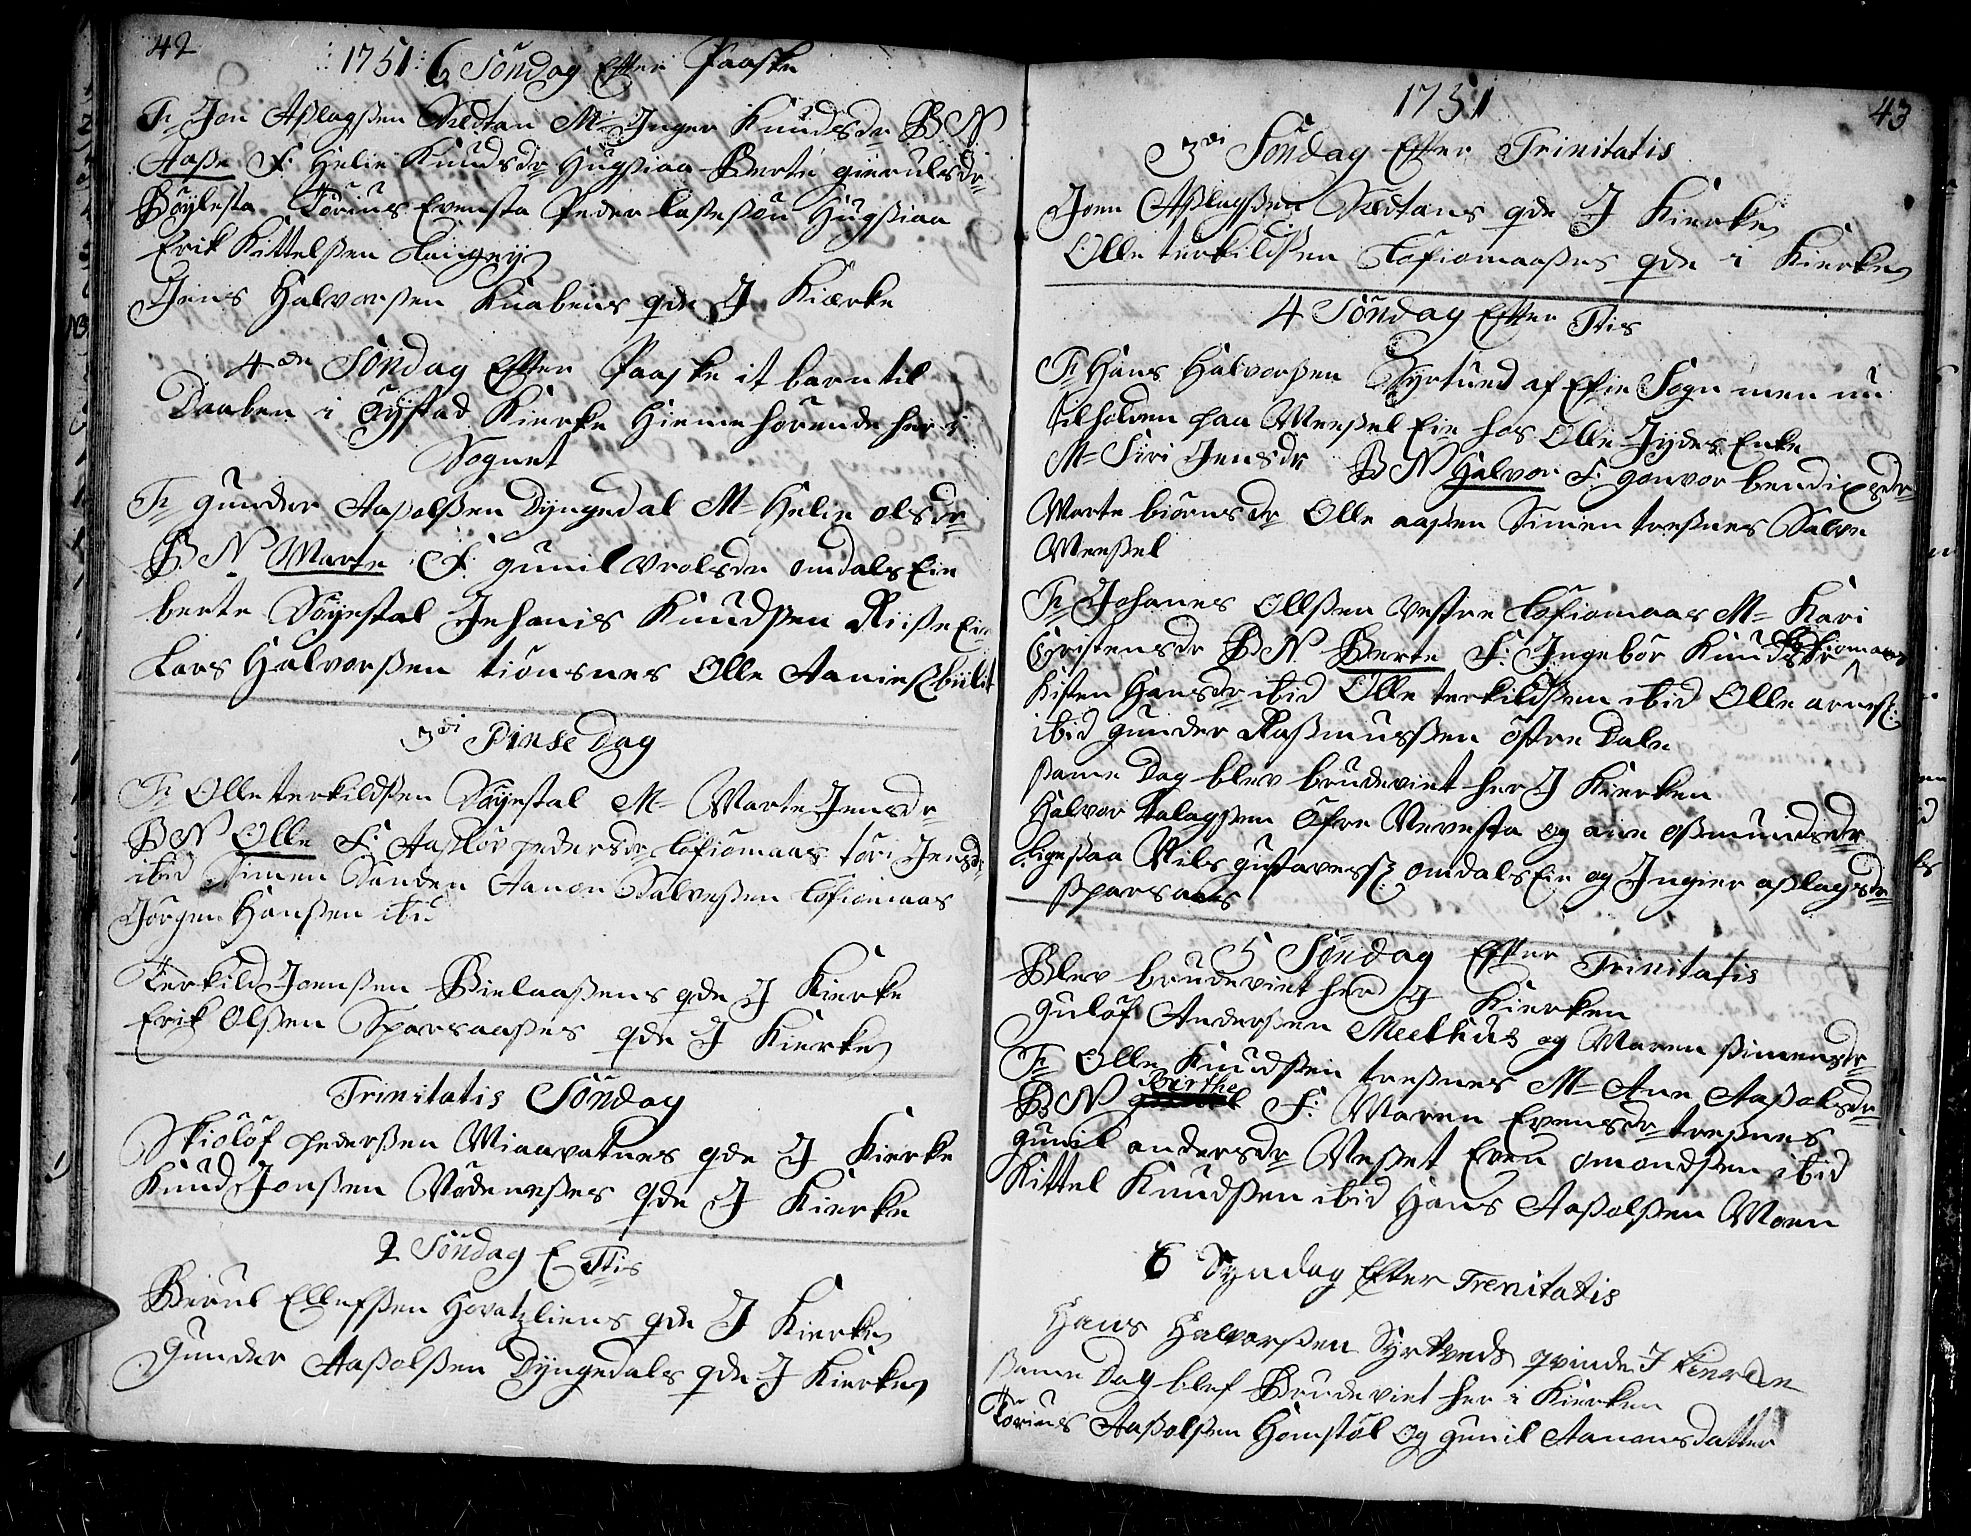 42
1751 6 Söndag Efter Paaske
Fr Jon Aslagßen Sædtan M- Inger Knudsdr BN
Aaße F. Helie Knudsdr Hugsiaa Berte gierulsdr
Böylesta Törius Evensta Peder laßesön Hugsiaa
Erik Kittelßen
Jens Halvorßen Knabens qde J Kierke
4de Söndag Efter Paaske it barn til
Daaben i Kierke Hieme hörende her i
Sognet
Fr gunder Aaßolßen Dyngedal M- Helie olsdr
B N Marte F. gunil Vrolsdr omdals Eie
berte Döyestal Johanis Knudßen Riiße Eie
Lars Halvorßen tiönsnes Olle Aanies
3di Pinse Dag
Fr Olle terkildßen Döyestal M- Marte Jensdr
BN Olle F. Aaslöv pedersdr tofiomaas töri Jensdr
ibid Simen Sanden Aanon Salveßen tofiomaas
Jörgen Hanßen ibid
Terkild Joenßen Bielaaßens qde J Kierke
Erik Olßen Sparsaaßes qde J Kierke
Trinitatis Söndag
Skiolöf pederßen Miaavatnes qde J Kierke
Knud Jonßen qde J Kierke
2 Söndag E Ttis
Berul Ellefßen qde J Kierke
Gunder Aaßolßen Dyngedals qde J Kierke
1751
43
3di Söndag Efter Trinitatis
Joen Aslagßen Sædtans qde J Kierke
Olle terkildßen Tofiomaaßes qde i Kierke
4 Söndag Efter Ttis
Fr Hans Halvorßen Syrtued af Efie Sogn men nu
tilholden paa Meeßel Eie hos Olle Jydes Enke
M- Siri Jensdr BN Halvor F. gonvor bendixsdr
Marte biörnsdr Olle aaßen Simen treßnes Salve
Meeßel
Fr Johanes Ollßen vestre tofiomaas M- Kari
Cristensdr BN. Berte F. Ingebör Knudsdr tofiomaas
Kisten Hansdr ibid Olle terkildßen ibid Olle
ibid gunder Raßmusßen östre Dale
ßame Dag blev brudeviet her J Kierken
Halvor Aslagßen Öfre Nevesta og aine oßmundsdr
Ligesaa Nils gustaves omdals Eie og Ingier aslagsdr
Sparsaas
5 Söndag Efter Trinitatis
Blev brudeviet her J Kierken
Gulöf Anderßen Meelhus og Maren ßimensdr
Fr Olle Knudßen treßnes M- Ane Aaßolsdr
BN Birthe F. Maren Evensdr treßnes
gunil andersdr Neßet Even omondßen ibid
Kittel Knudßen ibid Hans Aaßolßen Moen
6 Syndag Efter Trenitatis
Hans Halvorßen Syrtveds qvinde J Kiercken
ßame Dag blef Brudeviet her i Kierken
Törius Aaßolßen Homstöl og gunil Aanonsdatter